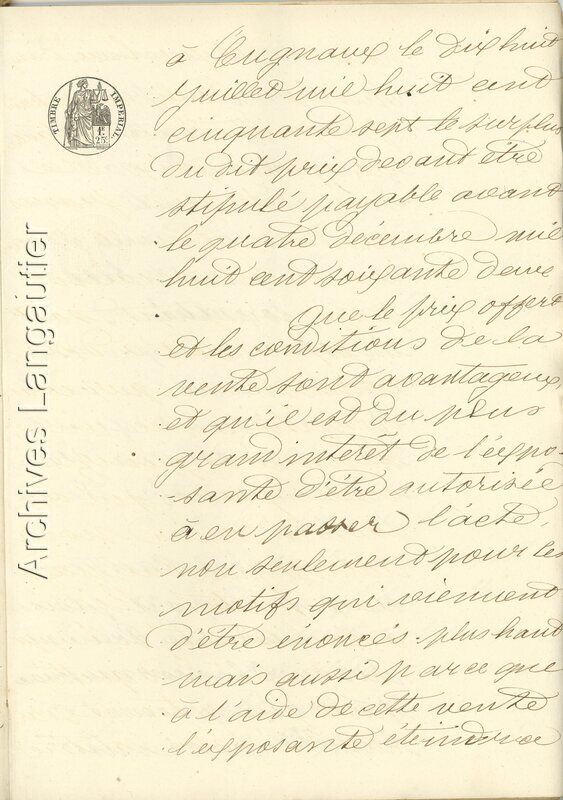 à Cugnaux le dix huit
Juillet mil huit cent
cinquante sept le surplus
du dit prix devant être
stipulé payable avant
le quatre décembre mil
huit cent soixante deux
que le prix offert
et les conditions de la
vente sont avantageux,
et qu'il est du plus
grand intérêt de l'expo-
sante d'être autorisée
à en passer l'acte,
non seulement pour les
motifs qui viennent
d'être énoncés plus haut
mais aussi parce que
à l'aide de cette vente
l'exposante éteindra
TIMBRE IMPERIAL
1F
25C
Archives Langautier